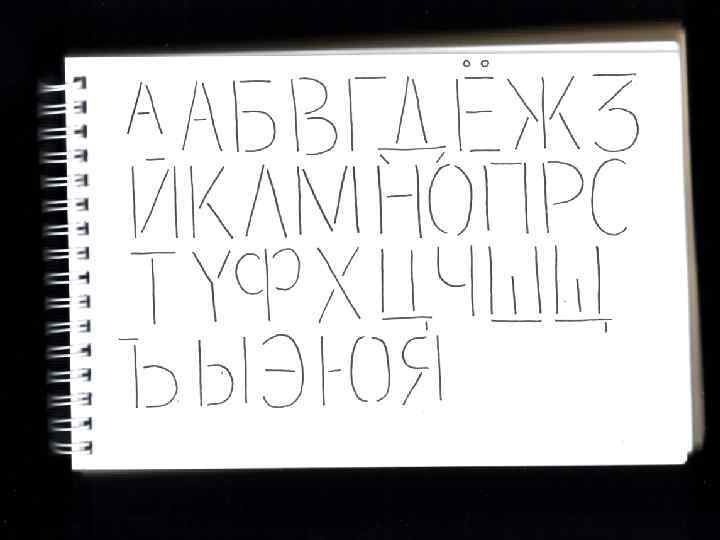 ААБВГДЁЖЗ
ЙКЛМНОПРС
ТУФХЦЧШЩ
ЪЫЭЮЯ